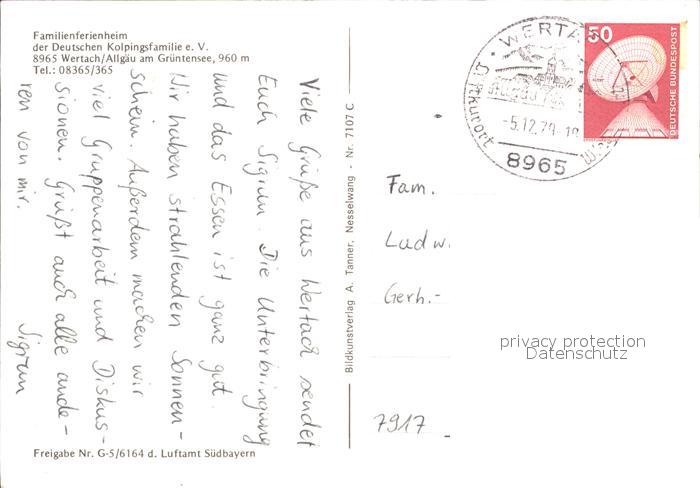 Familienferienheim
der Deutschen Kolpingsfamilie e. V.
8965 Wertach/Allgäu am Grüntensee, 960 m
Tel.: 08365/365
Viele Grüße aus Wertach sendet
Euch Sigrun. Die Unterbringung
und das Essen ist ganz gut.
Wir haben strahlenden Sonnen-
schein. Außerdem machen wir
viel Gruppenarbeit und Diskus-
sionen. Grüßt auch alle ande-
ren von mir.
Sigrun
Freigabe Nr. G-5/6164 d. Luftamt Südbayern
Bildkunstverlag A. Tanner, Nesselwang - Nr. 7107 C
WERTA
Luftkurort
-5.12.79-18
8965
50
DEUTSCHE BUNDESPOST
Fam.
Ludw
Gerh.-
7917
privacy protection
Datenschutz